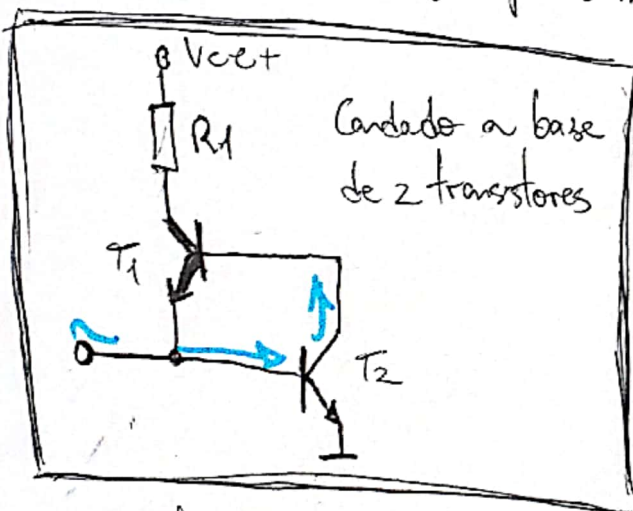 Vcc+
R1
Candado a base
de 2 transistores
T1
T2